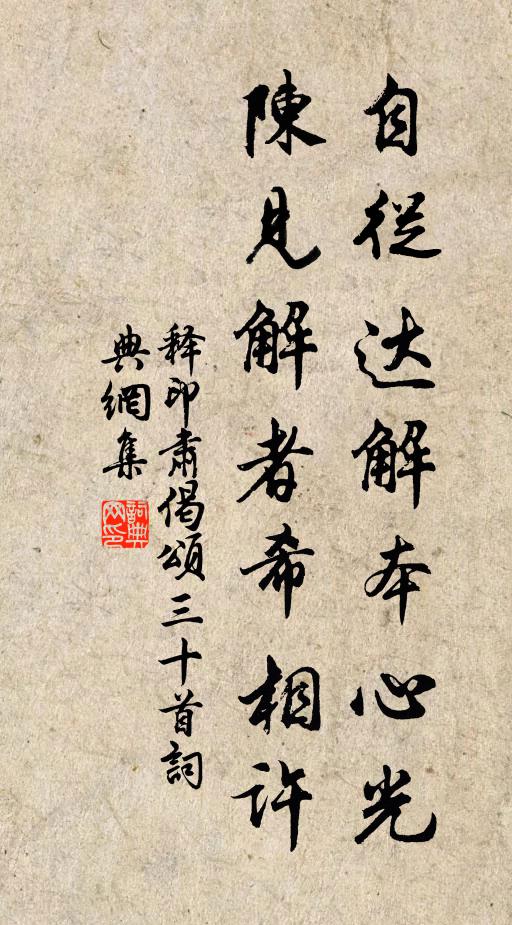 自從达解本心光
陳見解者希相許
释印肃偈頌三十首詞
典網集
詞典網印